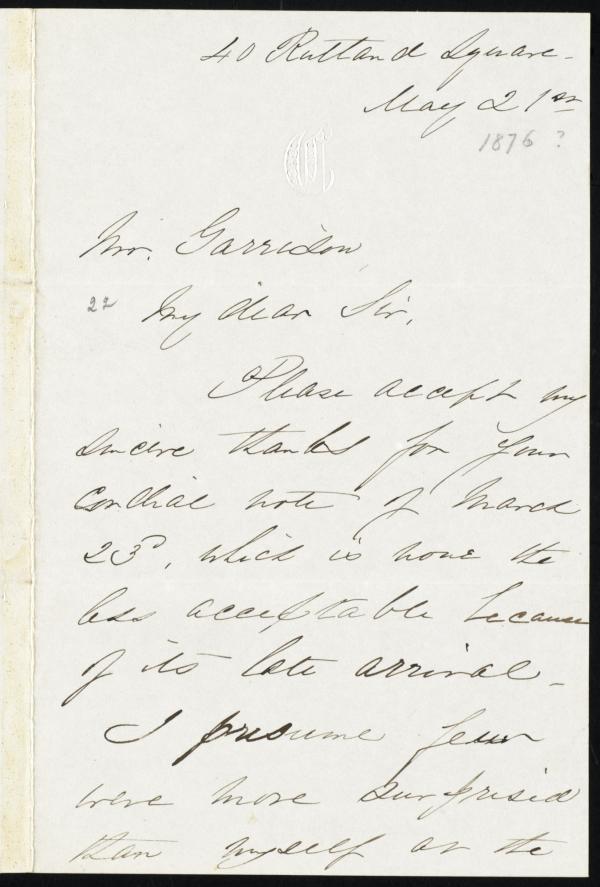 40 Rutland Square -
May 21st
1876 ?
Mr. Garrison
22 My dear Sir,
Please accept my
sincere thanks for your
cordial note of March
23d, which is none the
less acceptable because
of its late arrival -
I presume few
were more surprised
than myself at the